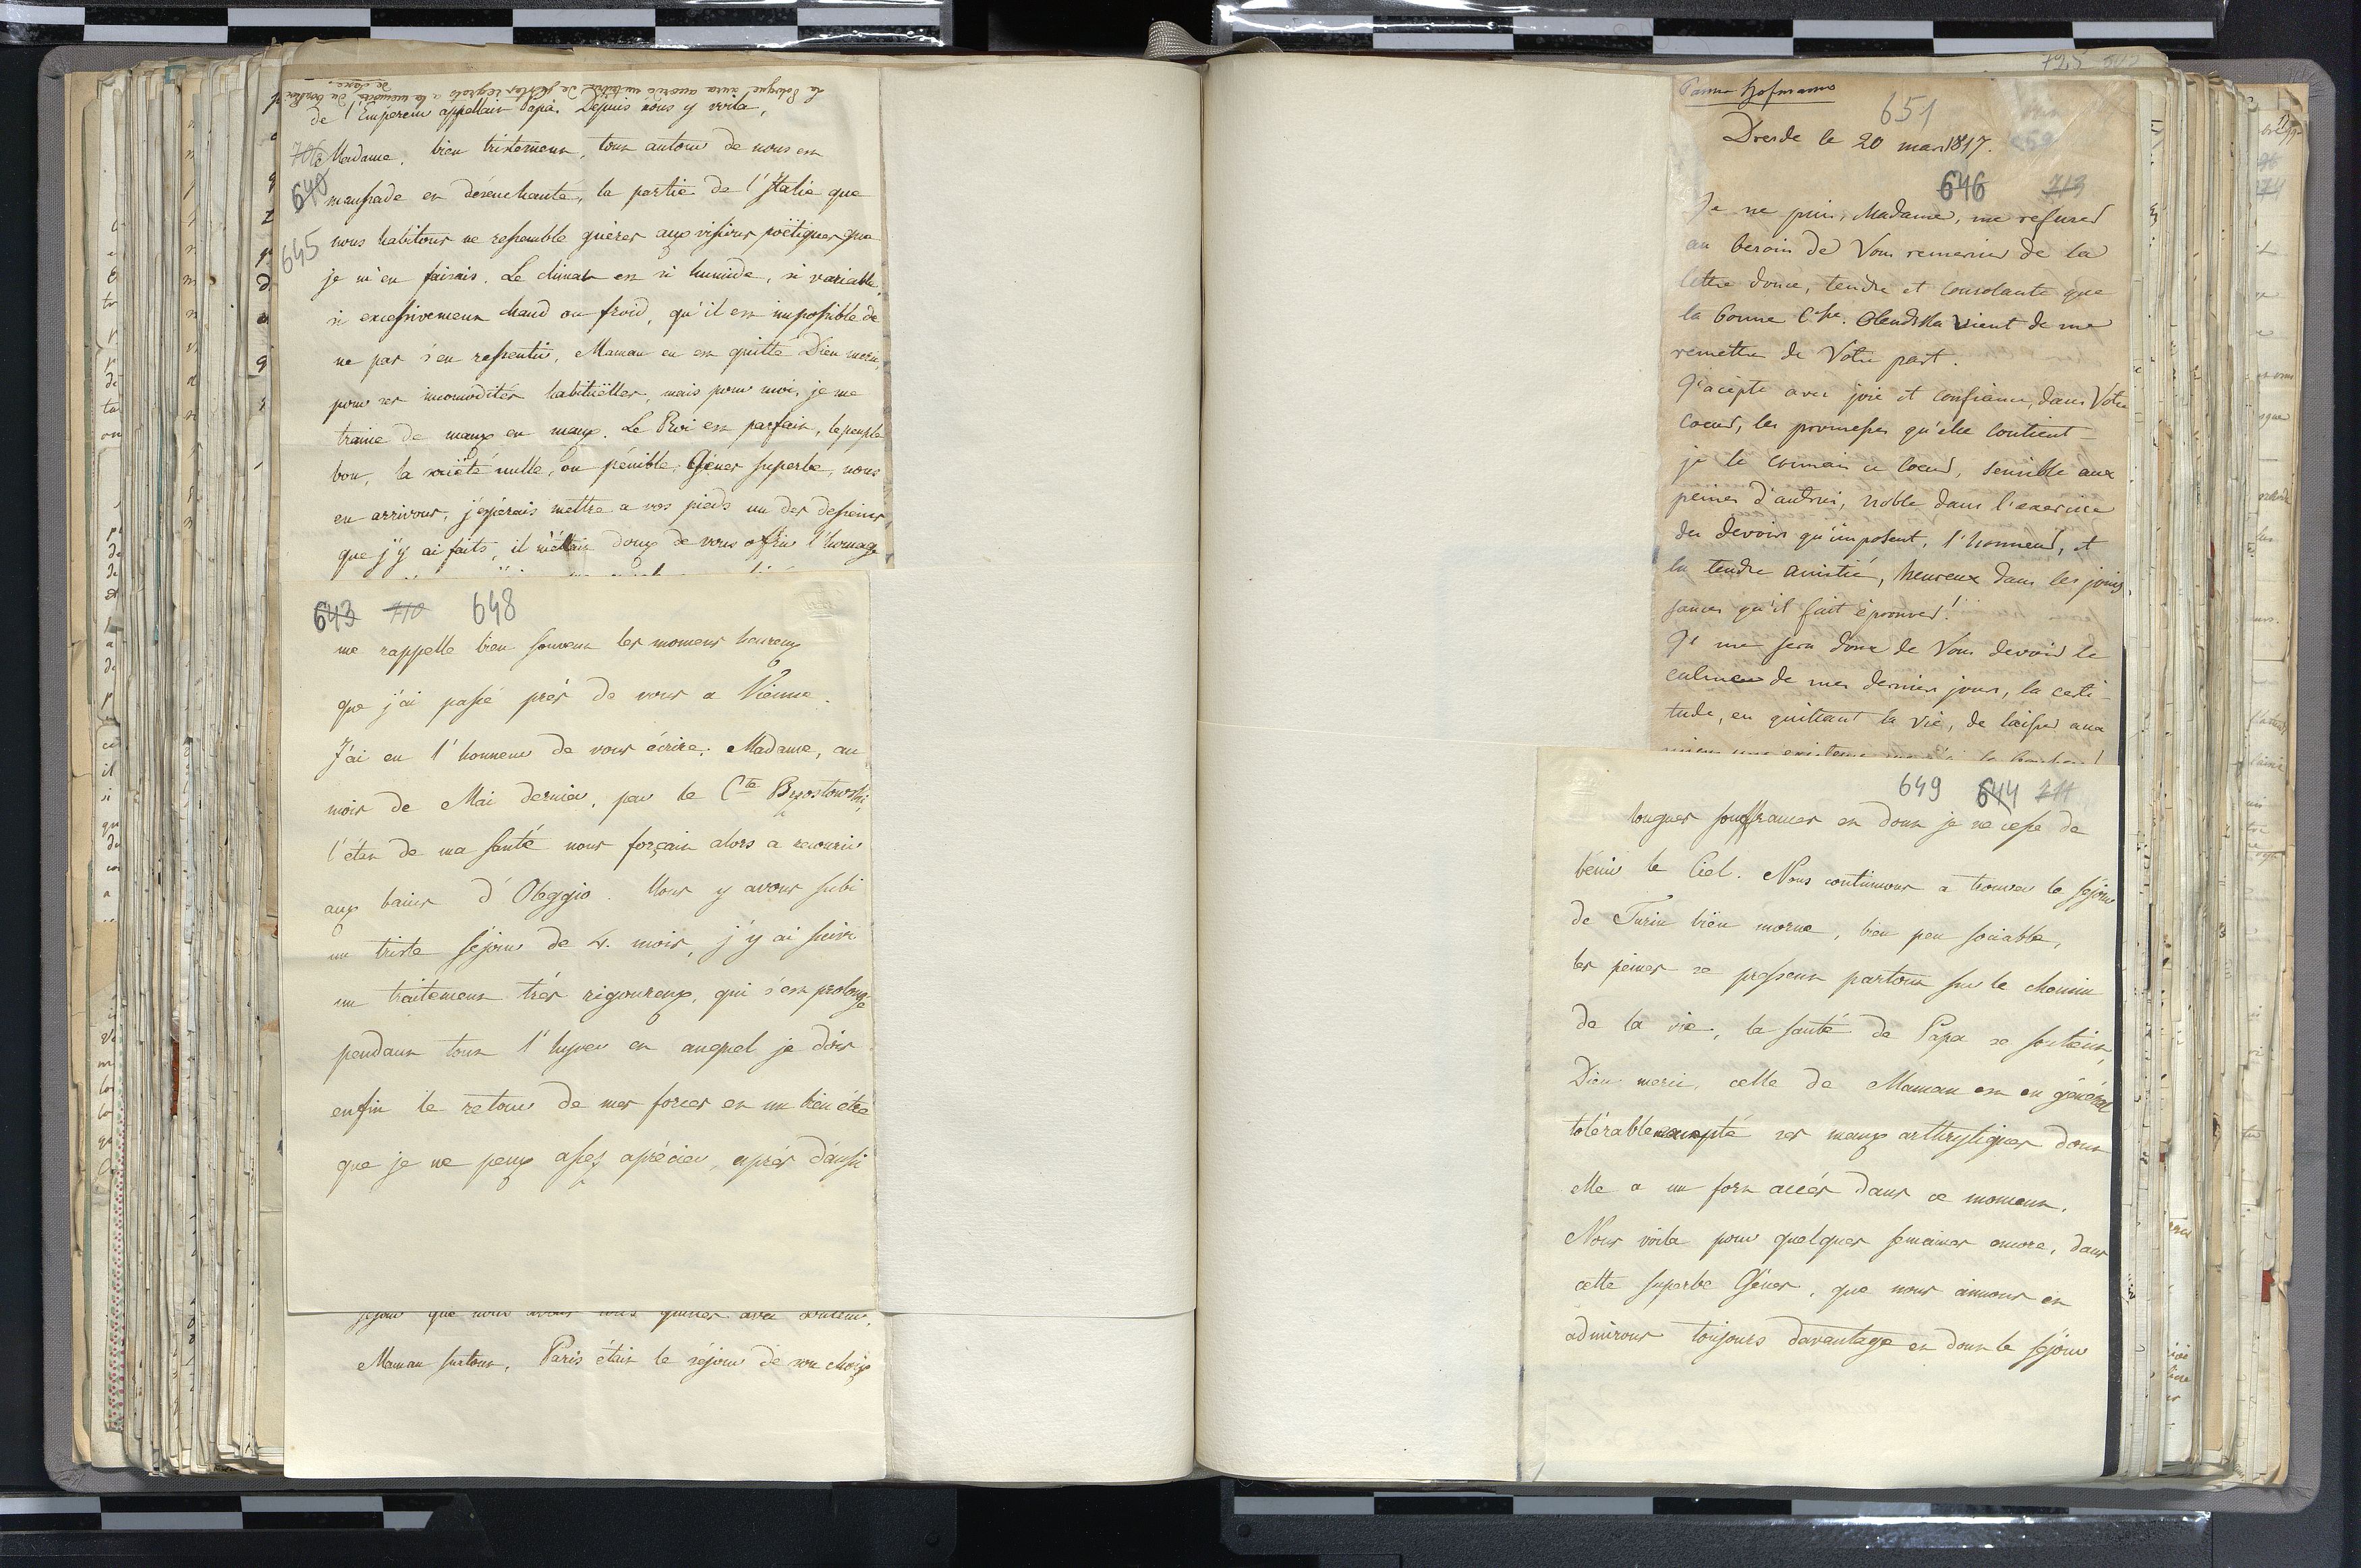 La Pologne aura accordé de justes regrets a la mémoire du
de l'Empereur appellait Papa. Depuis nous y voila,
706 Madame, bien tristement, tout autour de nous est
640 maussade et désenchanté, la partie de l'Italie que
645 nous habitons ne ressemble guères aux visions poëtiques que
je m'en faisais. Le climat est si humide, si variable,
si excessivement chaud ou froid, qu'il est impossible de
ne pas s'en ressentir, Maman en est quitte Dieu merci,
pour ses incomodités habituëlles, mais pour moi, je me
traine de maux en maux. Le Roi est parfait, le peuple
bon, la société nulle, ou pénible; Gênes superbe, nous
en arrivons, j'espérais mettre a vos pieds un des desseins,
que j'y ai faits, il m'était doux de vous offrir l'homage
643 710 648
me rappelle bien souvent les momens heureux
que j'ai passé près de vous a Vienne.
J'ai eu l'honneur de vous écrire, Madame, au
mois de Mai dernier, par le Cte Brzostowski,
l'état de ma santé nous forçait alors a recourir
aux bains d'Oleggio. Nous y avons subi
un triste séjour de 4. mois, j'y ai suivi
un traitement très rigoureux, qui s'est prolongé
pendant tout l'hyver et auquel je dois
enfin le retour de mes forces et un bien être
que je ne peux assez aprécier, après d'aussi
séjour que nous avons tous quitté avec douleur,
Maman surtout, Paris était le séjour de son choix
725
Panna Hofmann
651
Dresde le 20 mars 1817.
646 713
Je ne puis, Madame, me refuser
au besoin de Vous remercier de la
lettre douce, tendre et consolante que
la bonne Csse. vient de me
remettre de Votre part.
J'acepte avec joie et confiance, dans Votre
coeur, les promesses qu'elle contient –
je le connais ce coeur, sensible aux
peines d'autrui, noble dans l'exercice
des devoirs qu'imposent, l'honneur, et
la tendre amitié, heureux dans les jouis
sances qu'il fait éprouver!
Il me sera doux de Vous devoir le
calme de mes derniers jours, la certi-
tude, en quittant la vie, de laisser aux
miens une existence
649 644 711
longues souffrances et dont je ne cesse de
bénir le Ciel. Nous continuons a trouver le séjour
de Turin bien morne, bien peu sociable,
les peines se pressent partout sur le chemin
de la vie, la santé de Papa se soutient,
Dieu merci, celle de Maman est en général
tolérable excepté ses maux arthrytiques dont
elle a un fort accés dans ce moment.
Nous voila pour quelques semaines encore, dans
cette superbe Gênes, que nous aimons et
admirons toujours davantage et dont le séjour